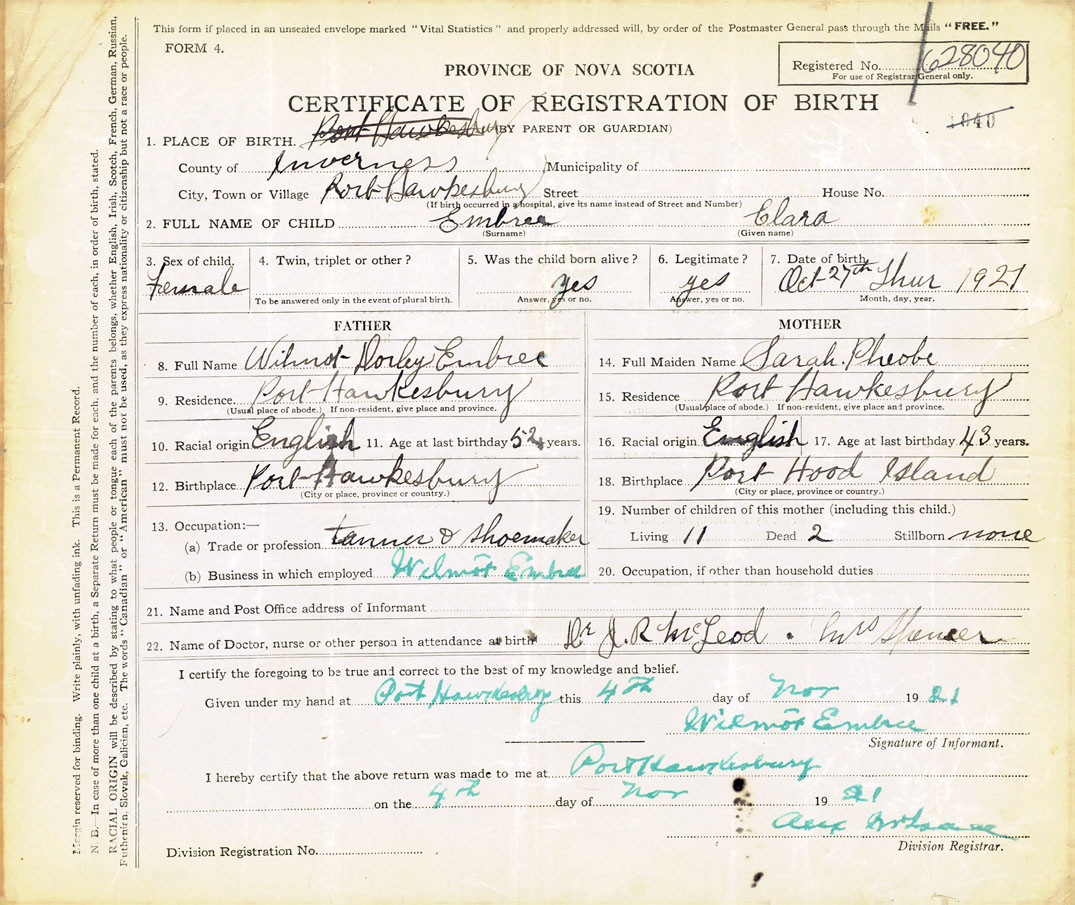 This form if placed in an unsealed envelope marked "Vital Statistics" and properly addressed will, by order of the Postmaster General pass through the Mails "FREE."
FORM 4.
Registered No. 628040
For use of Registrar General only.
PROVINCE OF NOVA SCOTIA
CERTIFICATE OF REGISTRATION OF BIRTH
1040
Port Hawkesbury (BY PARENT OR GUARDIAN)
1. PLACE OF BIRTH.
County of Inverness Municipality of
City, Town or Village Port Hawkesbury Street House No.
(If birth occurred in a hospital, give its name instead of Street and Number)
2. FULL NAME OF CHILD Embree Clara
(Surname) (Given name)
3. Sex of child. 4. Twin, triplet or other? 5. Was the child born alive? 6. Legitimate? 7. Date of birth
Female yes yes Oct 27th Thur 1921
To be answered only in the event of plural birth. Answer, yes or no. Answer, yes or no. Month, day, year.
FATHER
8. Full Name Wilmot Dorley Embree
9. Residence Port Hawkesbury
(Usual place of abode.) If non-resident, give place and province.
10. Racial origin English 11. Age at last birthday 52 years.
12. Birthplace Port Hawkesbury
(City or place, province or country.)
13. Occupation:—
(a) Trade or profession tanner & shoemaker
(b) Business in which employed Wilmot Embree
MOTHER
14. Full Maiden Name Sarah. Pheobe
15. Residence Port Hawkesbury
(Usual place of abode.) If non-resident, give place and province.
16. Racial origin English 17. Age at last birthday 43 years.
18. Birthplace Port Hood Island
(City or place, province or country.)
19. Number of children of this mother (including this child.)
Living 11 Dead 2 Stillborn none
20. Occupation, if other than household duties
21. Name and Post Office address of Informant
22. Name of Doctor, nurse or other person in attendance at birth Dr J. R McLeod . Mrs Spencer
I certify the foregoing to be true and correct to the best of my knowledge and belief.
Given under my hand at Port Hawkesbury this 4th day of Nov 19 21
Wilmot Embree
Signature of Informant.
I hereby certify that the above return was made to me at Port Hawkesbury
on the 4th day of Nov 19 21
Alex
Division Registrar.
Division Registration No.
Margin reserved for binding. Write plainly, with unfading ink. This is a Permanent Record.
N. B. In case of more than one child at a birth, a Separate Return must be made for each, and the number of each, in order of birth, stated.
RACIAL ORIGIN will be described by stating to what people or tongue each of the parents belongs, whether English, Irish, Scotch, French, German, Russian,
Ruthenian, Slovak, Galician, etc. The words "Canadian" or "American" must not be used, as they express nationality or citizenship but not a race or people.